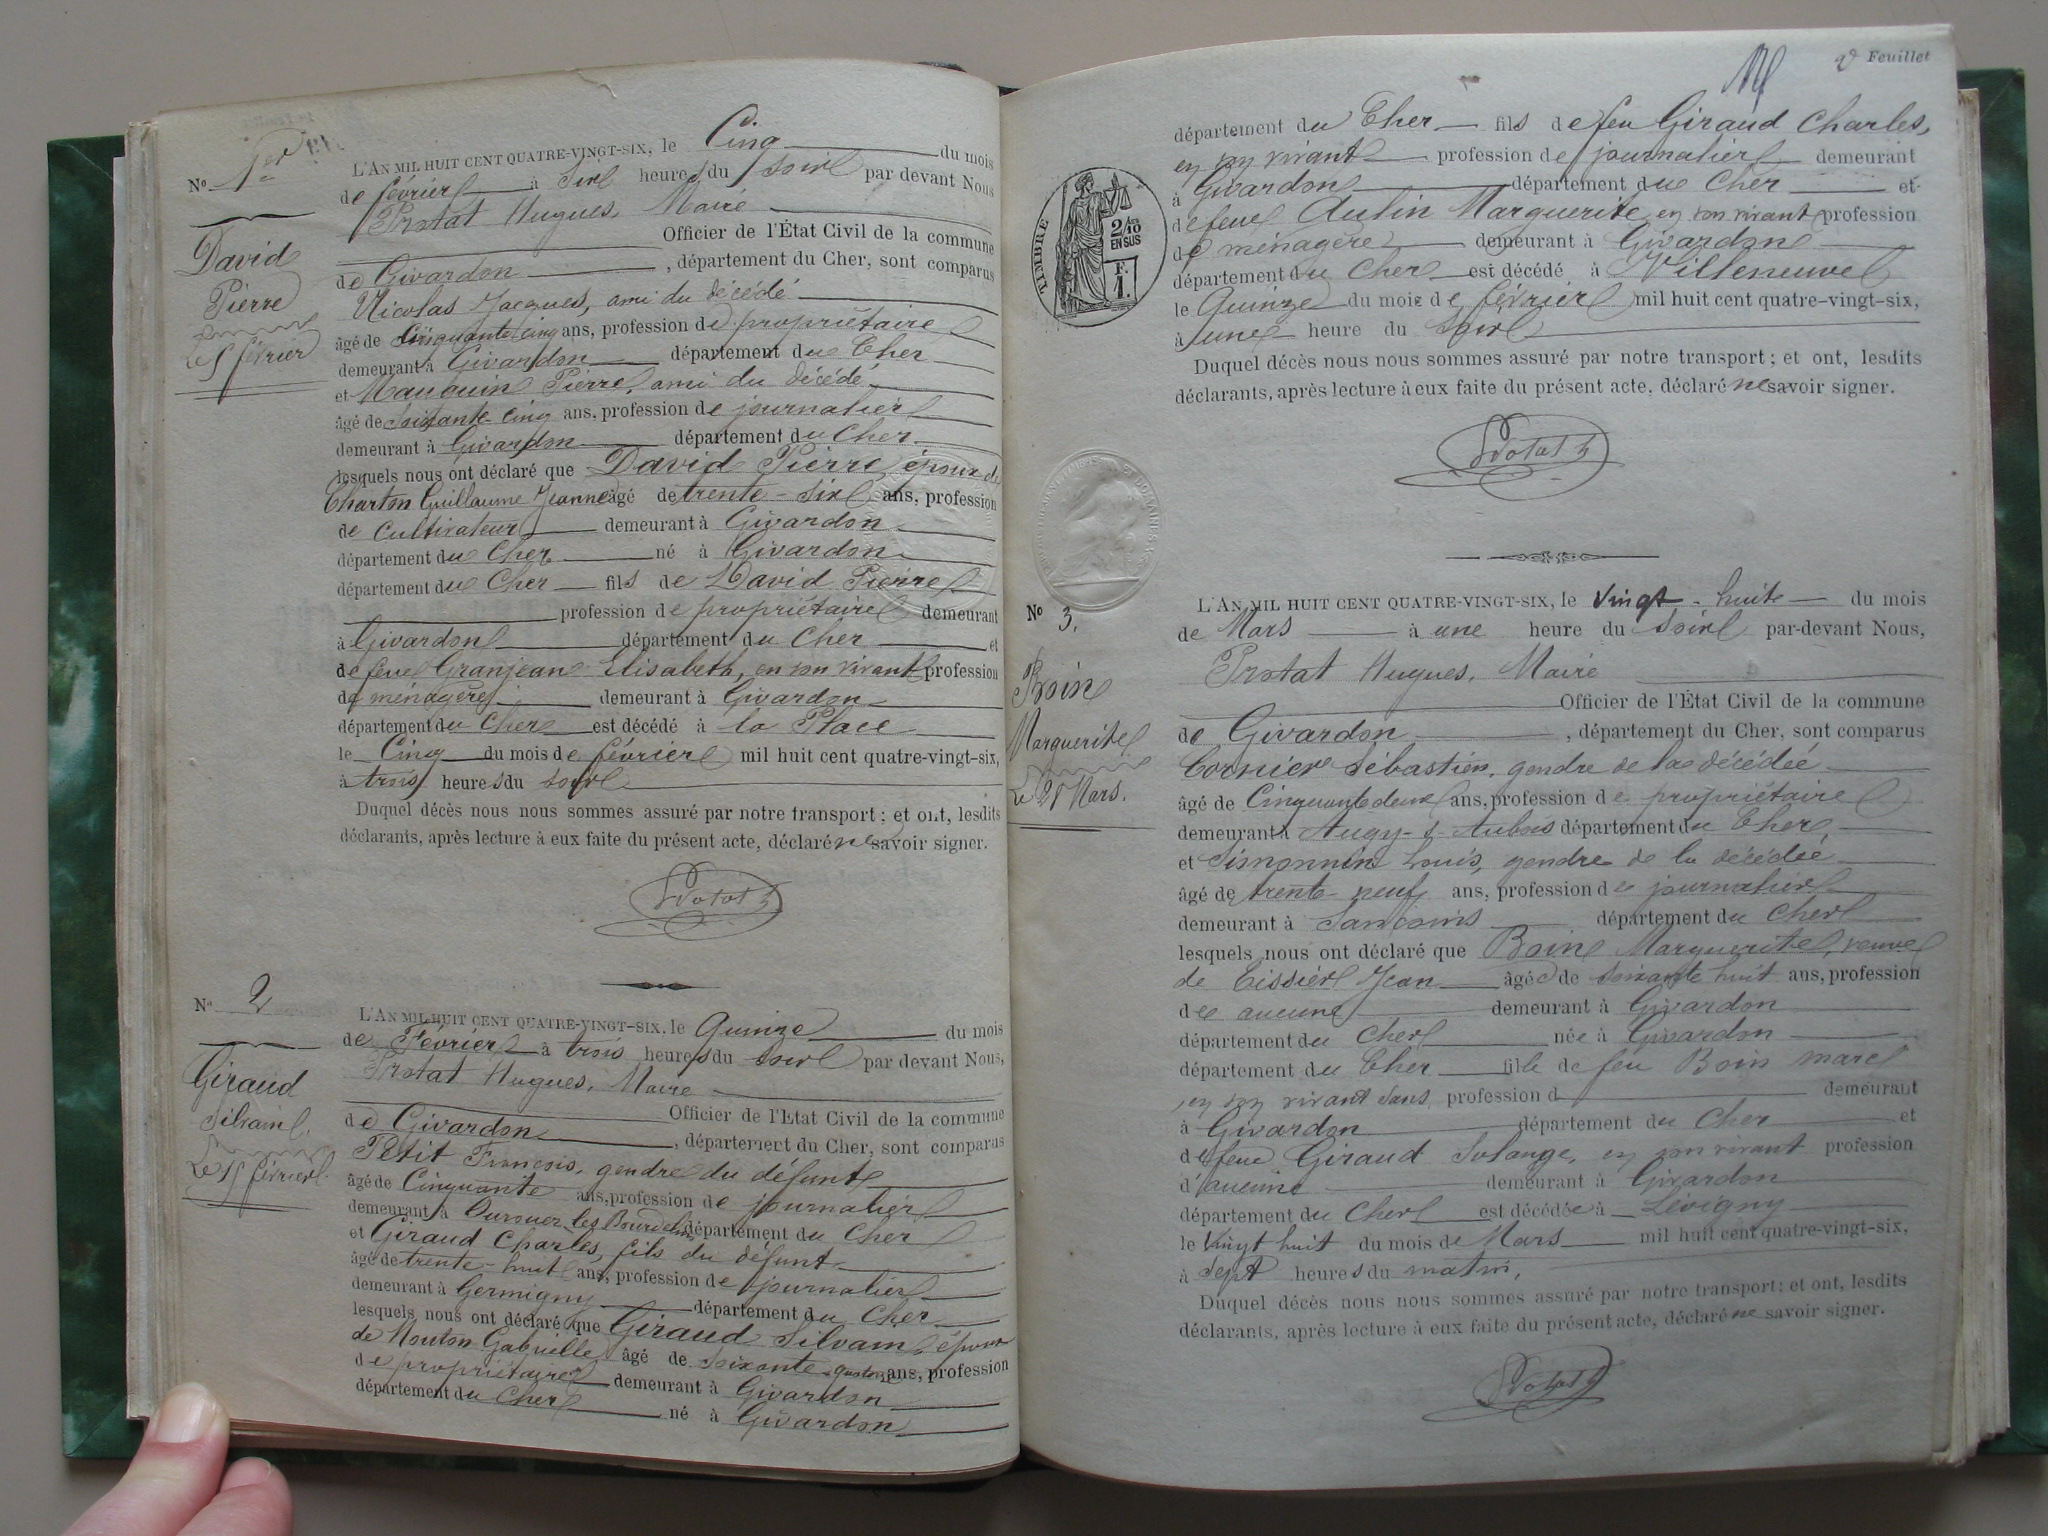 No 1er
David
Pierre
Le 5 février
L'AN MIL HUIT CENT QUATRE-VINGT-SIX, le Cinq du mois
de février à six heures du soir par devant Nous
Protat Hugues, Maire
Officier de l'État Civil de la commune
de Givardon, département du Cher, sont comparus
Nicolas Jacques, ami du décédé
âgé de Cinquante cinq ans, profession de propriétaire
demeurant à Givardon département du Cher
et Mauguin Pierre, ami du décédé
âgé de soixante-cinq ans, profession de journalier
demeurant à Givardon département du Cher
lesquels nous ont déclaré que David Pierre époux de
Charton Guillaume Jeanne âgé de trente-six ans, profession
de Cultivateur demeurant à Givardon
département du Cher né à Givardon
département du Cher fils de David Pierre
profession de propriétaire demeurant
à Givardon département du Cher et
de feue Granjean Elisabeth, en son vivant profession
de ménagère demeurant à Givardon
département du Cher est décédé à la Place
le Cinq du mois de février mil huit cent quatre-vingt-six,
à trois heures du soir
Duquel décès nous nous sommes assuré par notre transport; et ont, lesdits
déclarants, après lecture à eux faite du présent acte, déclaré ne savoir signer.
Protat h
No 2
Giraud
Silvain.
Le 15 février
L'AN MIL HUIT CENT QUATRE-VINGT-SIX, le Quinze du mois
de Février à trois heures du soir par devant Nous,
Protat Hugues, Maire
Officier de l'État Civil de la commune
de Givardon, département du Cher, sont comparus
Petit François, gendre du défunt
âgé de Cinquante ans, profession de journalier
demeurant à Ourouer les Bourdelins département du Cher
et Giraud Charles, fils du défunt
âgé de trente-huit ans, profession de journalier
demeurant à Germigny département du Cher
lesquels nous ont déclaré que Giraud Silvain, époux
de Mouton Gabrielle âgé de soixante-quatorze ans, profession
de propriétaire demeurant à Givardon
département du Cher né à Givardon
2e Feuillet
département du Cher fils de feu Giraud Charles,
en son vivant profession de journalier demeurant
à Givardon département du Cher et
de feue Aulin Marguerite, en son vivant profession
de ménagère demeurant à Givardon
département du Cher est décédé à Villeneuve
le Quinze du mois de février mil huit cent quatre-vingt-six,
à une heure du soir
Duquel décès nous nous sommes assuré par notre transport; et ont, lesdits
déclarants, après lecture à eux faite du présent acte, déclaré ne savoir signer.
Protat h
TIMBRE
2/10
EN SUS
F.
1.
No 3.
Boin
Marguerite
Le 28 Mars.
L'AN MIL HUIT CENT QUATRE-VINGT-SIX, le vingt-huite du mois
de Mars à une heure du soir par-devant Nous,
Protat Hugues, Maire
Officier de l'État Civil de la commune
de Givardon, département du Cher, sont comparus
Cornier Sébastien, gendre de la décédée
âgé de Cinquante deux ans, profession de propriétaire
demeurant à Augy-s-Aubois département du Cher,
et Simonnin Louis, gendre de la décédée
âgé de trente-neuf ans, profession de journalier
demeurant à Sancoins département du Cher
lesquels nous ont déclaré que Boin Marguerite, veuve
de Tissier Jean âgée de soixante huit ans, profession
de aucune demeurant à Givardon
département du Cher née à Givardon
département du Cher fille de feu Boin Marc
, en son vivant sans profession d demeurant
à Givardon département du Cher et
de feue Giraud Solange, en son vivant profession
d'aucune demeurant à Givardon
département du Cher est décédée à Lévigny
le vingt huit du mois de Mars mil huit cent quatre-vingt-six,
à sept heures du matin,
Duquel décès nous nous sommes assuré par notre transport; et ont, lesdits
déclarants, après lecture à eux faite du présent acte, déclaré ne savoir signer.
Protat h